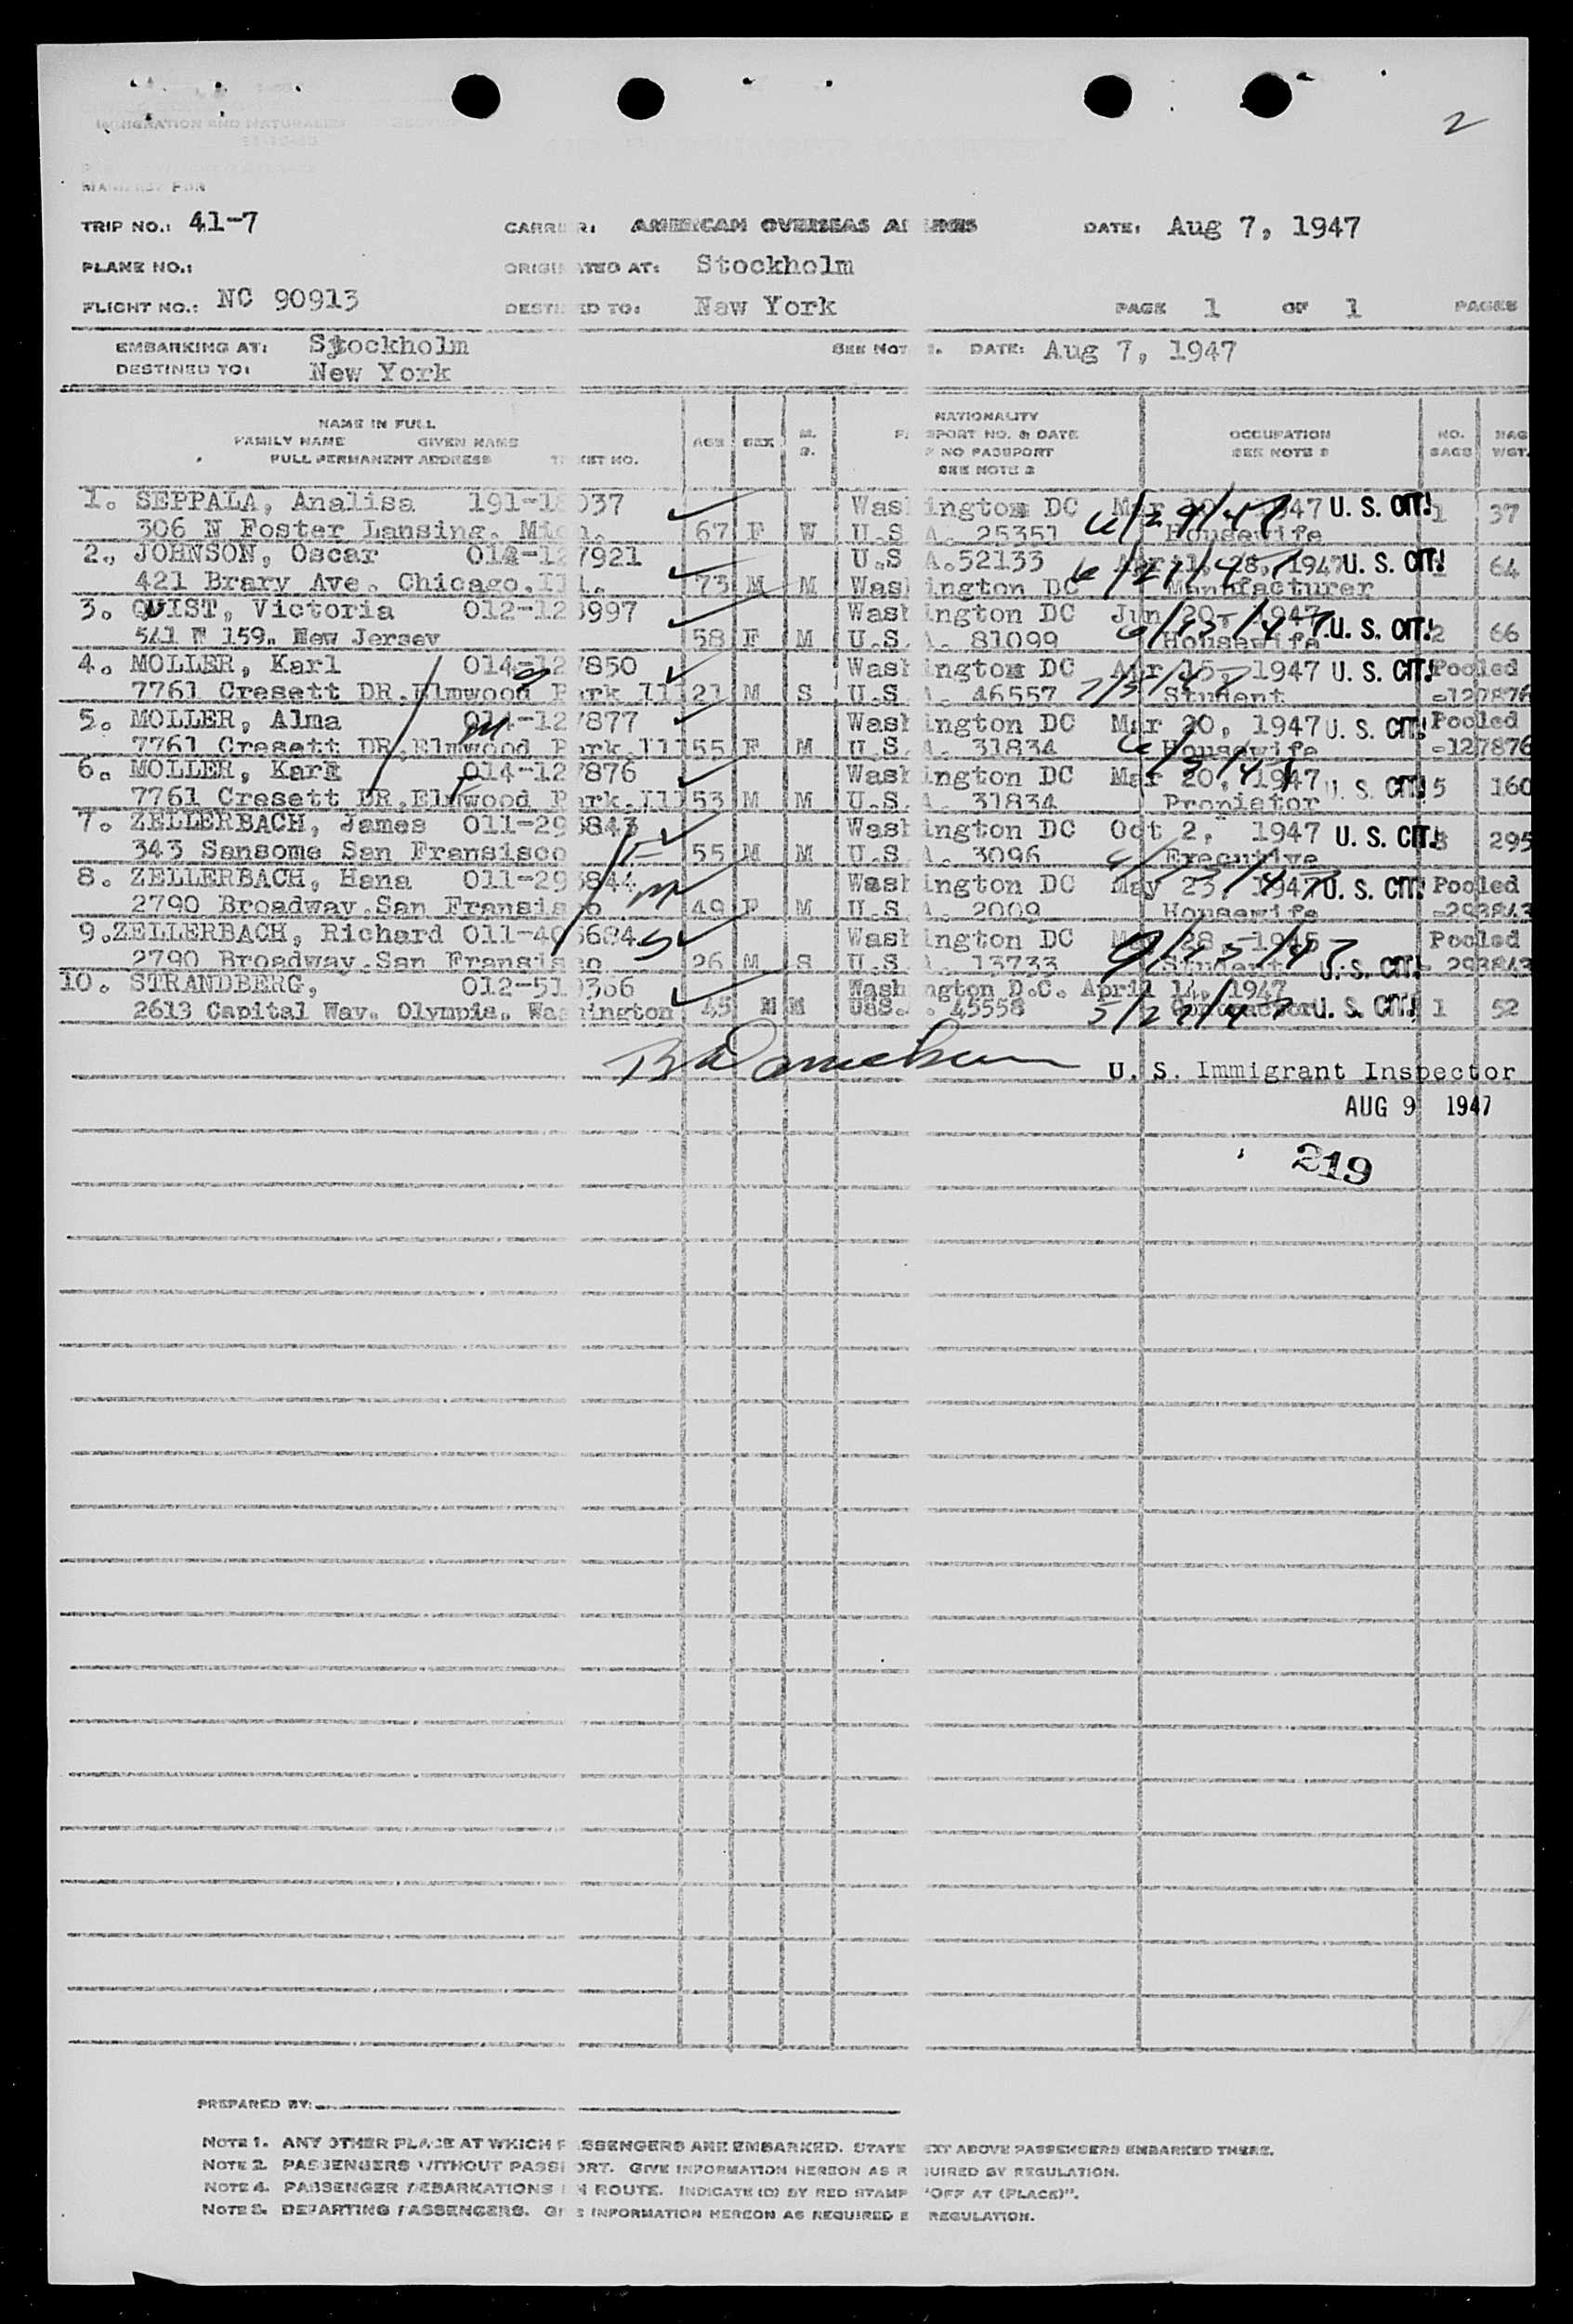 2
IMMIGRATION AND
MANIFEST FOR
TRIP NO.: 41-7 CARRIER: AMERICAN OVERSEAS AIRLINES DATE: Aug 7, 1947
PLANE NO.: ORIGINATED AT: Stockholm
FLIGHT NO.: NC 90913 DESTINED TO: New York PAGE 1 OF 1 PAGES
EMBARKING AT: Stockholm SEE NOTE 1. DATE: Aug 7, 1947
DESTINED TO: New York
NAME IN FULL
FAMILY NAME GIVEN NAME
FULL PERMANENT ADDRESS TICKET NO. AGE SEX M. S. NATIONALITY PASSPORT NO. & DATE IF NO PASSPORT SEE NOTE 2 OCCUPATION SEE NOTE 3 NO. BAGS BAG WGT.
1. SEPPALA, Analisa 191-18037 Washington DC Mar 1947 U. S. CIT! 1 37
306 N Foster Lansing. Mich. 67 F W U.S.A. 25351 6/29/47 Housewife
2., JOHNSON, Oscar 014-127921 U.S.A.52133 April, 28, 1947 U. S. CIT! 1 64
421 Brary Ave. Chicago.Ill. 73 M M Washington DC 6/21/47 Manufacturer
3. QUIST, Victoria 012-123997 Washington DC Jun 20, 1947 U. S. CIT! 2 66
541 W 159. New Jersey 58 F M U.S.A. 81099 Housewife
4. MOLLER, Karl 014-127850 Washington DC Apr 15, 1947 U. S. CIT! Pooled
7761 Cresett DR.Elmwood Park Ill 21 M S U.S.A. 46557 Student =127876
5. MOLLER, Alma 014-127877 Washington DC Mar 20, 1947 U. S. CIT! Pooled
7761 Cresett DR.Elmwood Park.Ill 55 F M U.S.A. 31834 Housewife =127876
6. MOLLER, Karl 014-127876 Washington DC Mar 20, 1947 U. S. CIT! 5 160
7761 Cresett DR.Elmwood Park.Ill 53 M M U.S.A. 31834 Propietor
7. ZELLERBACH, James 011-293843 Washington DC Oct 2, 1947 U. S. CIT! 8 295
343 Sansome San Fransisco 55 M M U.S.A. 3096 Executive
8. ZELLERBACH, Hana 011-293844 Washington DC May 23, 1947 U. S. CIT! Pooled
2790 Broadway.San Fransisco 49 F M U.S.A. 2009 Housewife =293843
9.ZELLERBACH, Richard 011-405684 Washington DC 28, 1945 Pooled
2790 Broadway.San Fransisco 26 M S U.S.A. 13733 Student U. S. CIT! = 293843
10. STRANDBERG, 012-510366 Washington D.C. April 14, 1947
2613 Capital Way. Olympia. Washington 45 M M U.S.A. 45558 5/27/47 Contractor U. S. CIT! 1 52
U. S. Immigrant Inspector
AUG 9 1947
219
PREPARED BY:
NOTE 1. ANY OTHER PLACE AT WHICH PASSENGERS ARE EMBARKED. STATE NEXT ABOVE PASSENGERS EMBARKED THERE.
NOTE 2. PASSENGERS WITHOUT PASSPORT. GIVE INFORMATION HEREON AS REQUIRED BY REGULATION.
NOTE 4. PASSENGER DEBARKATIONS EN ROUTE. INDICATE (D) BY RED STAMP "OFF AT (PLACE)".
NOTE 3. DEPARTING PASSENGERS. GIVE INFORMATION HEREON AS REQUIRED BY REGULATION.